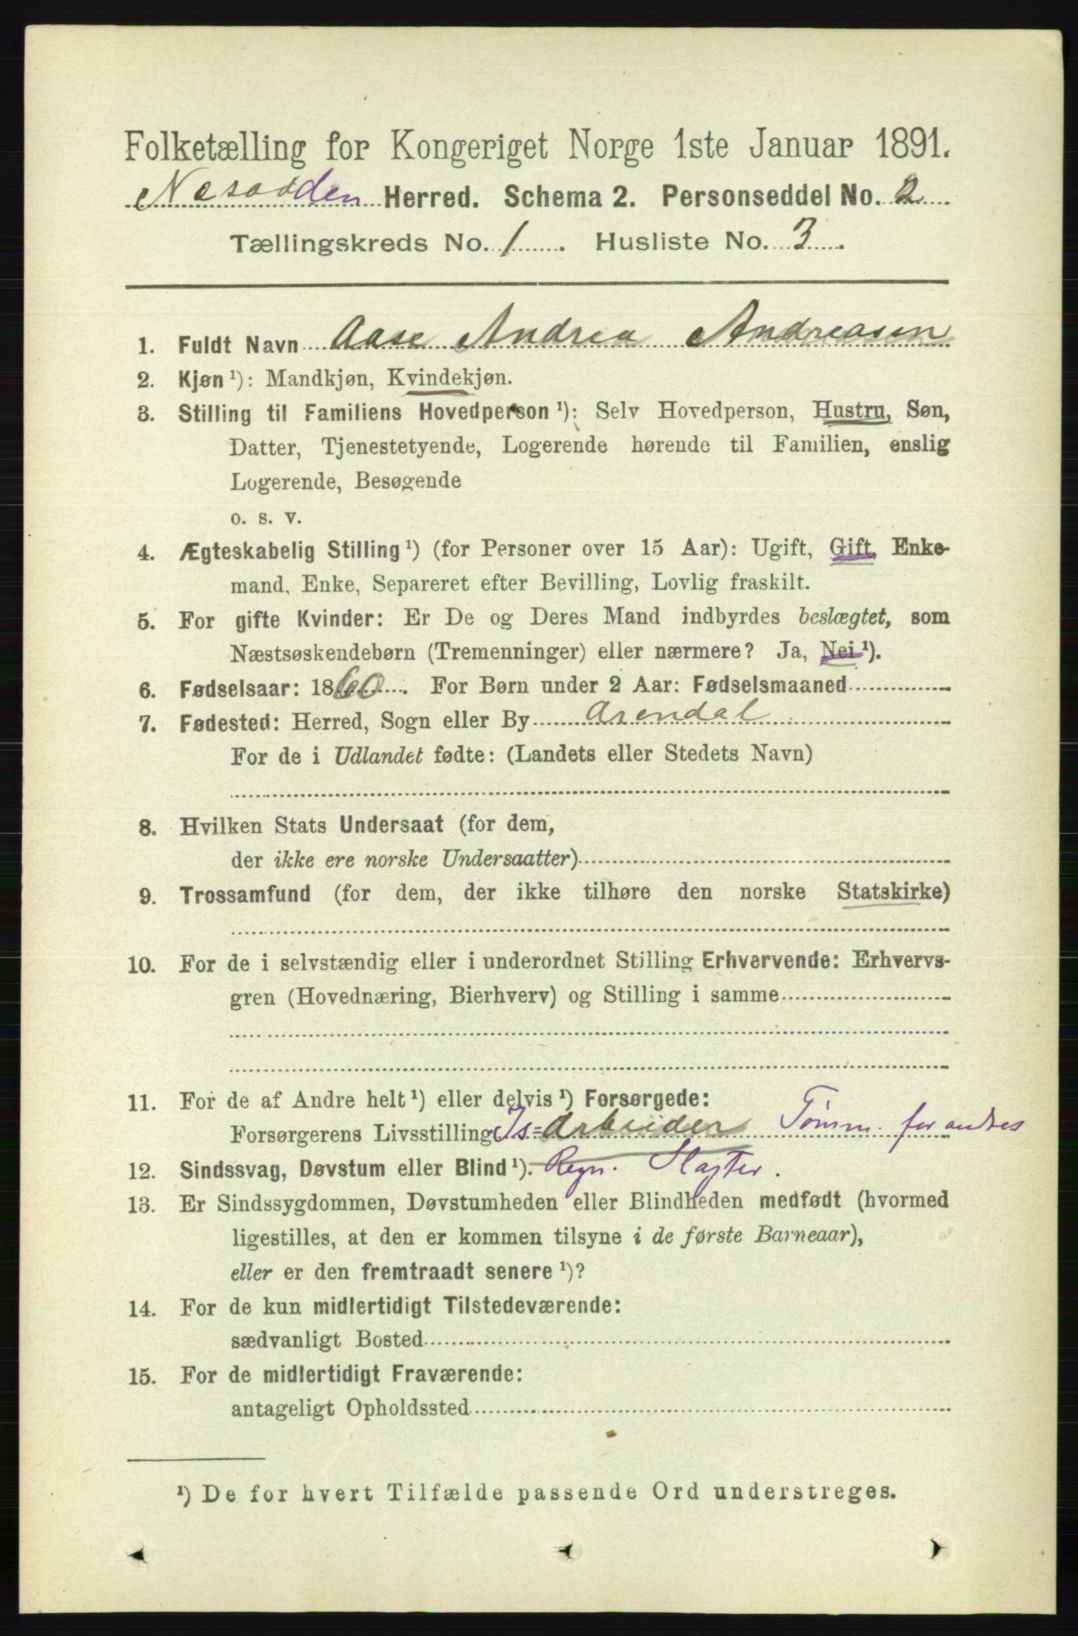 Folketælling for Kongeriget Norge 1ste Januar 1891.
Nesodden Herred. Schema 2. Personseddel No. 2
Tællingskreds No. 1. Husliste No. 3.
1. Fuldt Navn Aase Andrea Andreasen
2. Kjøn ¹): Mandkjøn, Kvindekjøn.
3. Stilling til Familiens Hovedperson ¹): Selv Hovedperson, Hustru, Søn,
Datter, Tjenestetyende, Logerende hørende til Familien, enslig
Logerende, Besøgende
o. s. v.
4. Ægteskabelig Stilling ¹) (for Personer over 15 Aar): Ugift, Gift, Enke-
mand, Enke, Separeret efter Bevilling, Lovlig fraskilt.
5. For gifte Kvinder: Er De og Deres Mand indbyrdes beslægtet, som
Næstsøskendebørn (Tremenninger) eller nærmere? Ja, Nei ¹).
6. Fødselsaar: 1860. For Børn under 2 Aar: Fødselsmaaned
7. Fødested: Herred, Sogn eller By Arendal
For de i Udlandet fødte: (Landets eller Stedets Navn)
8. Hvilken Stats Undersaat (for dem,
der ikke ere norske Undersaatter)
9. Trossamfund (for dem, der ikke tilhøre den norske Statskirke)
10. For de i selvstændig eller i underordnet Stilling Erhvervende: Erhvervs-
gren (Hovednæring, Bierhverv) og Stilling i samme
11. For de af Andre helt ¹) eller delvis ¹) Forsørgede:
Forsørgerens Livsstilling Is=Arbeider Tømm. for andres
12. Sindssvag, Døvstum eller Blind ¹). Regn.
13. Er Sindssygdommen, Døvstumheden eller Blindheden medfødt (hvormed
ligestilles, at den er kommen tilsyne i de første Barneaar),
eller er den fremtraadt senere ¹)?
14. For de kun midlertidigt Tilstedeværende:
sædvanligt Bosted
15. For de midlertidigt Fraværende:
antageligt Opholdssted
¹) De for hvert Tilfælde passende Ord understreges.